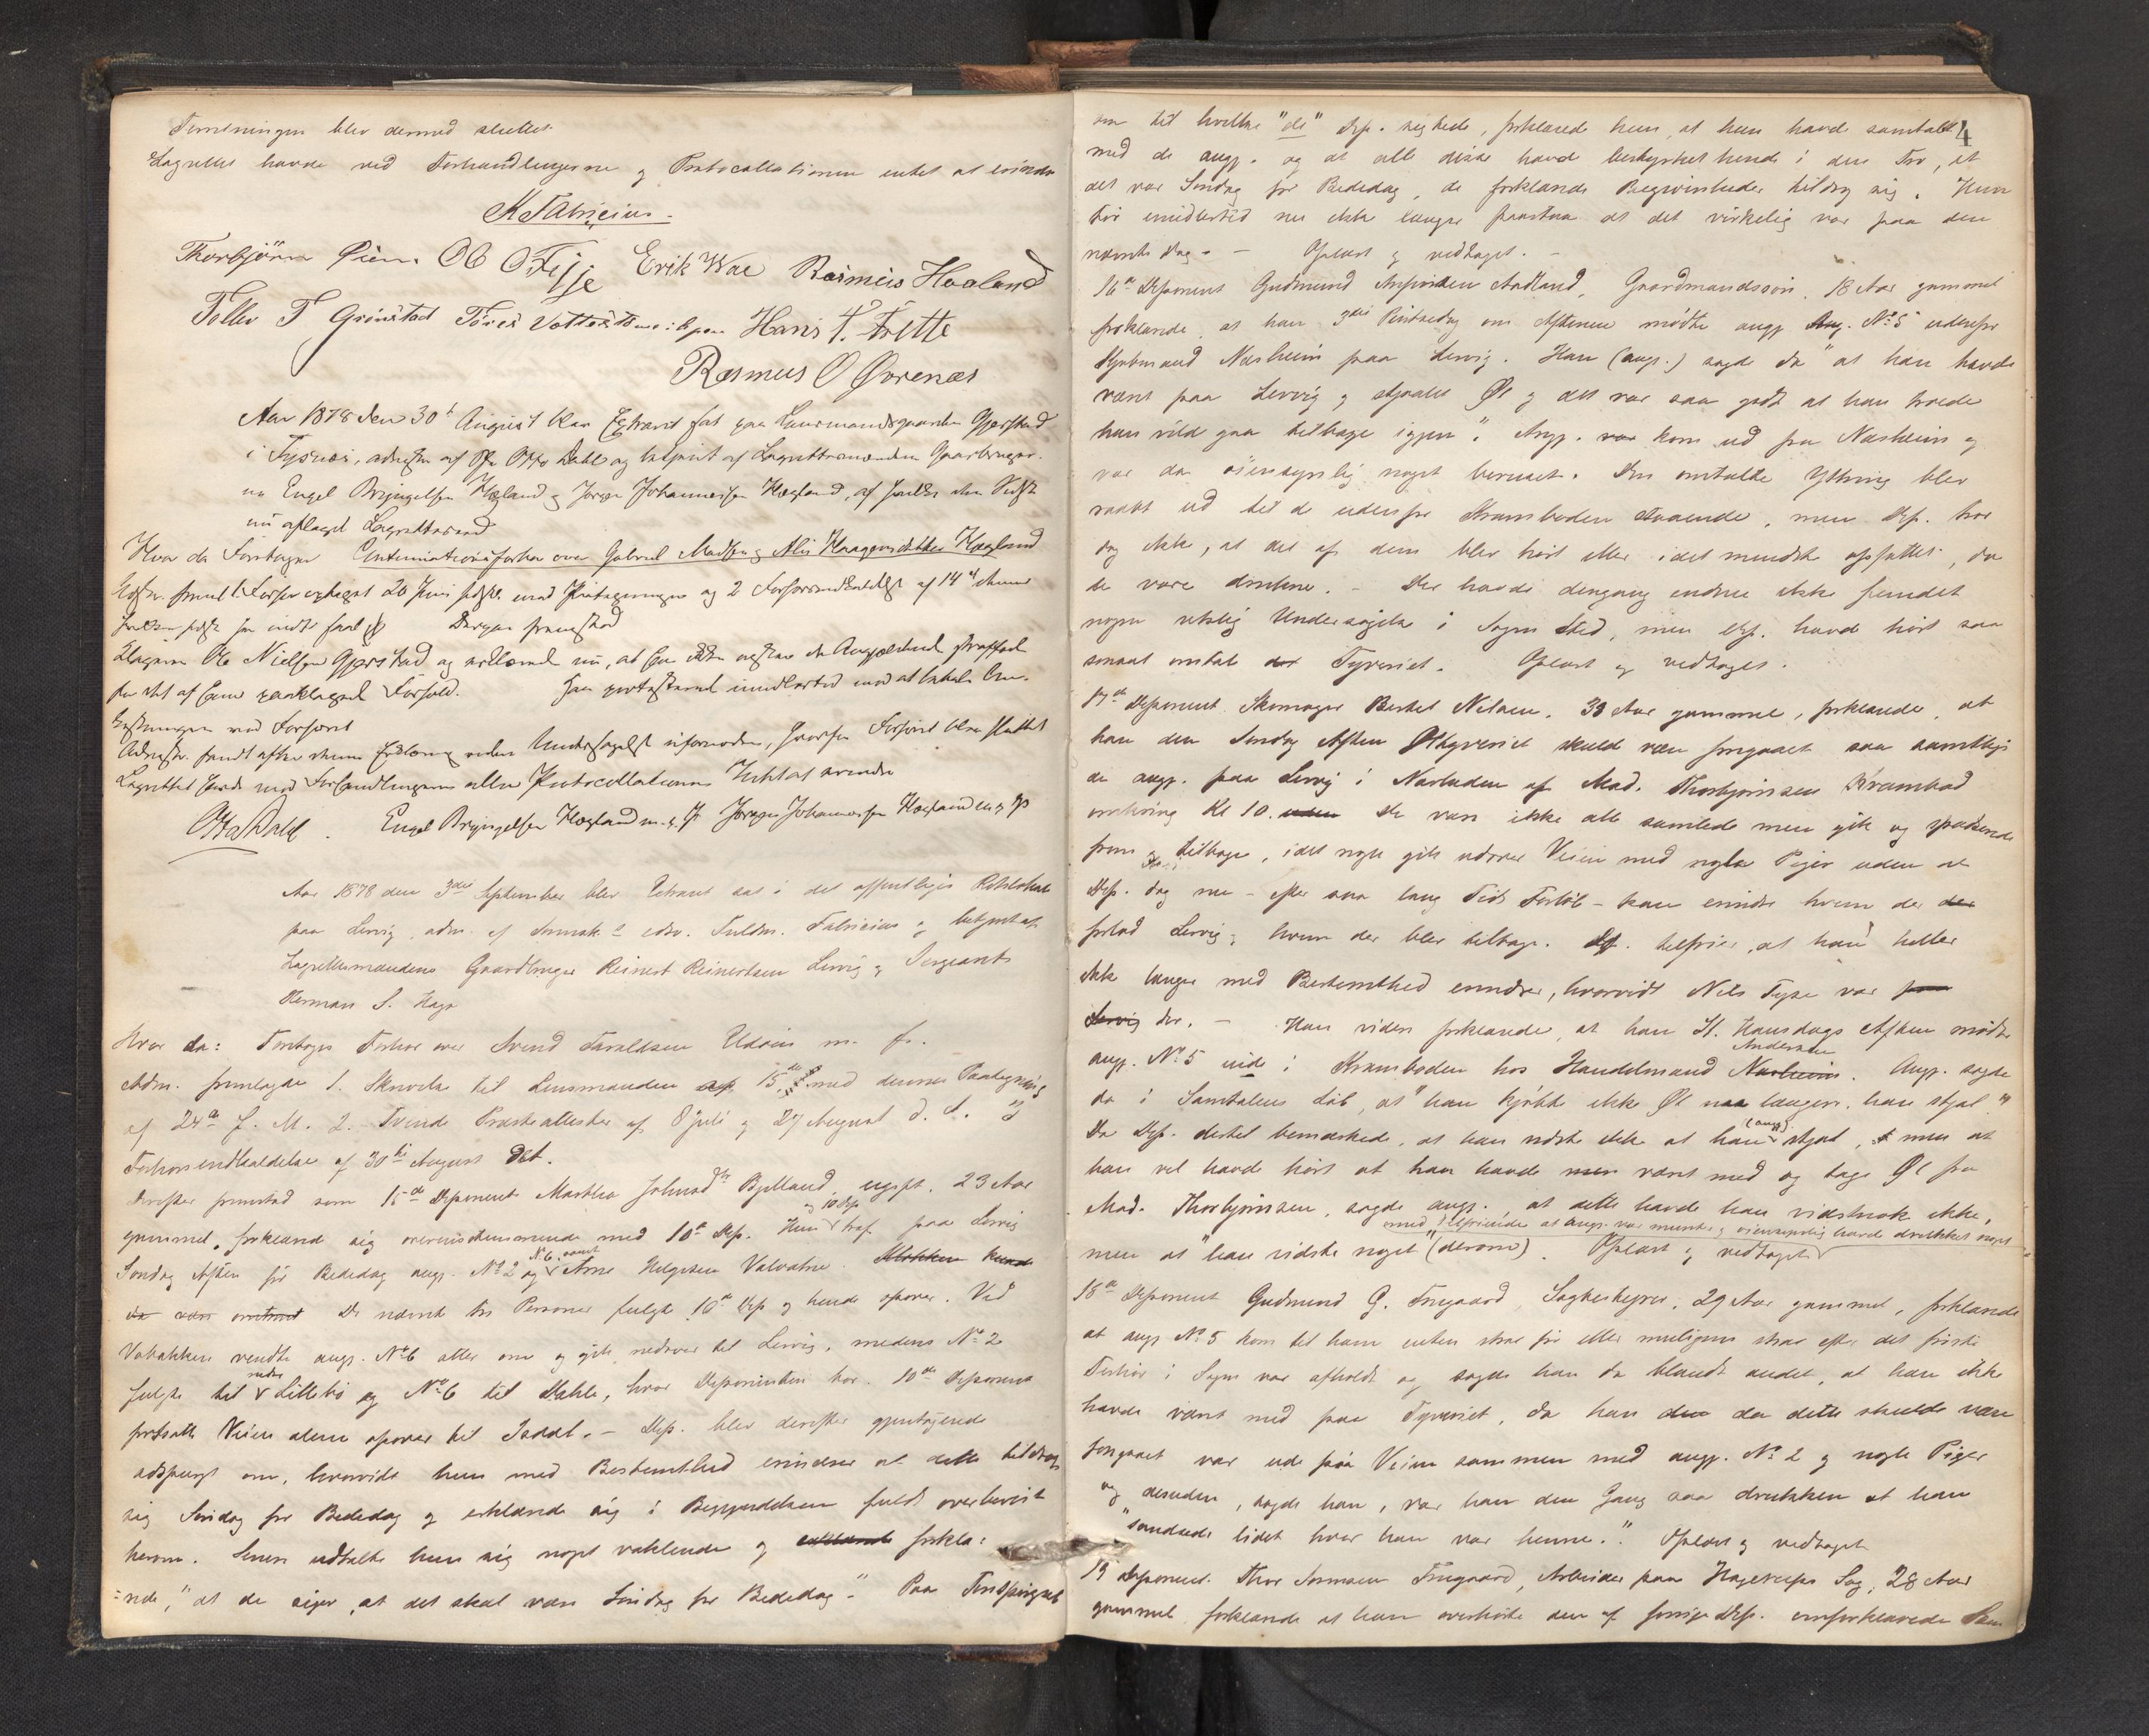 Forretningen blev dermed sluttet.
Lagrettet havde ved Forhandlingerne og Protocollationen intet at erindre
K Fabricius
Thorbjörn Øien. O O Tejje Erik Wae Rasmus Haaland
Tollev T Grönstad Töres Hans T. Trette
Rasmus O Øvrenæs
Aar 1878 den 30t August blev Extraret sat paa Lensmandsgaarden Gjerstad
i Tysnæs, adminst. af Otto Dahl og betjent af Lagrettemændene Gaardbruger-
ne Engel Brynjulfsen Hegland og Jørgen Johannessen Hegland, af hvilke den Sidste
nu aflagde Lagretteseed
Hvor da foretages Continuationsforhør over Gabriel Madsen og Hegland
fremlagde Forhør optaget 20 Juni sidstl. med Paategninger og 2 Forhørsindkaldelse af 14d dennes
Derpaa fremstod
Klageren Ole Nielsen Gjerstad og erklærede nu, at han ikke begjærer de Angjældende straffede
for det af ham paaklagede Forhold. Han protesterede imidlertid mod at betale Om-
kostningerne ved Forhøret
Adminstr. fandt efter denne Erklæring videre Undersøgelse ufornøden, hvorfor Forhøret blev sluttet
Lagrettet havde ved Forhandlingerne eller Protocollationen Intet at erindre
Otto Dahl. Engel Brynjulfsen Hegland m. p. P. Jørgen Johannessen Hegland m. p. P.
Aar 1878 den 3die September blev Extraret sat i det offentlige Retslokale
paa Lervig, adm. af edsv. Fuldm. Fabricius og betjent af
Lagrettemændene Gaardbruger Reinert Reinertsen Lervig og Sergeant
Herman S. Haga
Hvor da: Foretages Forhør over Svend Taraldsen Uldøen m. fl.
Adm. fremlagde 1. Skrivelse til Lensmanden af 15de med dennes Paategning
af 24de f. M. 2. Tvende Præsteattester af 8 Juli og 27 August d. A. 3
Forhørsindkaldelse af 30te August d. A.
Derefter fremstod som 15de Deponent Marthea Johnsdtr Bjelland, ugift, 23 Aar
gammel, forklarede sig overensstemmende med 10de Dep. Hun og 10 Dep traf paa Lervig
Søndag Aften før Bededag angj. No 2 og No 6, samt Arne Helgesen Valvatne. Klokken kunde
da være omtrent De nævnte tre Personer fulgte 10de Dep og hende opover. Ved
Vabakken vendte angj. No 6 atter om og gik nedover til Lervig, medens No 2
fulgte med til Littebø og No 6 til Dahle, hvor Deponenten bor. 10de Deponent
fortsatte Veien alene opover til Isdal. – Dep. blev derefter gjentagende
adspurgt om, hvorvidt hun med Bestemthed erindrer at dette tildrog
sig Søndag før Bededag og erklærede sig i Begyndelsen fuldt overbevist
herom. Senere udtalte hun sig noget vaklende og erklærede forkla:
=rede, "at de siger, at det skal være Søndag før Bededag". Paa Forespørgsel
4
om til hvilke "de" Dep. sigtede, forklarede hun, at hun havde samtalt
med de angj. og at alle disse havde bestyrket hende i den Tro, at
det var Søndag før Bededag, de forklarede Begivenheder tildrog sig. Hun
tør imidlertid nu ikke længer paastaa at det virkelig var paa den
nævnte Dag. – Oplæst og vedtaget. –
16de Deponent Gudmund Aadland, Gaardmandssøn, 18 Aar gammel
forklarede, at han 3die Pintsedag om Aftenen mødte angj Ang. No 5 udenfor
Kjøbmand Næsheim paa Lervig. Han (angj.) sagde da "at han havde
været paa Lervig og stjaalet Øl og det var saa godt at han troede
han vilde gaa tilbage igjen". Angj. var kom ud fra Næsheim og
var da øiensynlig noget beruset. Den omtalte Yttring blev
raabt ud til de udenfor Kramboden staaende, men Dep. tror
dog ikke, at det af dem blev hørt eller idetmindste opfattet, da
de vare drukne. – Der havde dengang endnu ikke fundet
nogen retslig Undersøgelse i Sagen Sted, men Dep. havde hørt saa
smaat omtale det Tyveriet. Oplæst og vedtaget.
17de Deponent Skomager Bertel Nilsen, 33 Aar gammel, forklarede, at
han den Søndag Aften Øltyveriet skulde være foregaaet saa samtlige
de angj. paa Lervig i Nærheden af Mad. Thorbjørnsens Krambod
omkring Kl 10. uden De vare ikke alle samlede men gik og spadserede
frem og tilbage, idet nogle gik udover Veien med nogle Piger uden at
Dep. dog nu – efter saa lang Tids Forløb – kan erindre hvem der der
forlod Lervig og hvem der blev tilbage. Dep. tilføier, at han heller
ikke længer med Bestemthed erindrer, hvorvidt Nils Tyse var paa
Lervig der. – Han videre forklarede, at han St. Hansdags Aften mødte
angj. No 5 inde i Kramboden hos Handelsmand Næsheim Andersen. Angj. sagde
da i Samtalens Løb, at "han kjøbte ikke Øl naa længere, han stjal".
Da Dep. dertil bemærkede, at han vidste ikke at han (angj.) stjal, men at
han vel havde hørt at han havde men været med og tage Øl fra
Mad. Thorbjørnsen, sagde angj., at dette havde han vistnok ikke,
men at "han vidste noget" (derom). med Tilføiende at Angj. var munter og øiensynlig havde drukket noget Oplæst og vedtaget
18de Deponent Gudmund G. Tvegaard, Sagbestyrer, 29 Aar gammel, forklarede
at angj No 5 kom til ham enten strax før eller muligens strax efter det første
Forhør i Sagen var afholdt og sagde han da blandt andet, at han ikke
havde været med paa Tyveriet, da han den da dette skulde være
foregaaet var ude paa Veien sammen med angj. No 2 og nogle Piger
og desuden, sagde han, var han den Gang saa drukken at han
"sandsede lidet hvor han var henne." Oplæst og vedtaget
19 Deponent. Thor Tvegaard, Arbeider paa Sag, 28 Aar
gammel forklarede at han overhørte den af forrige Dep. omforklarede Sam